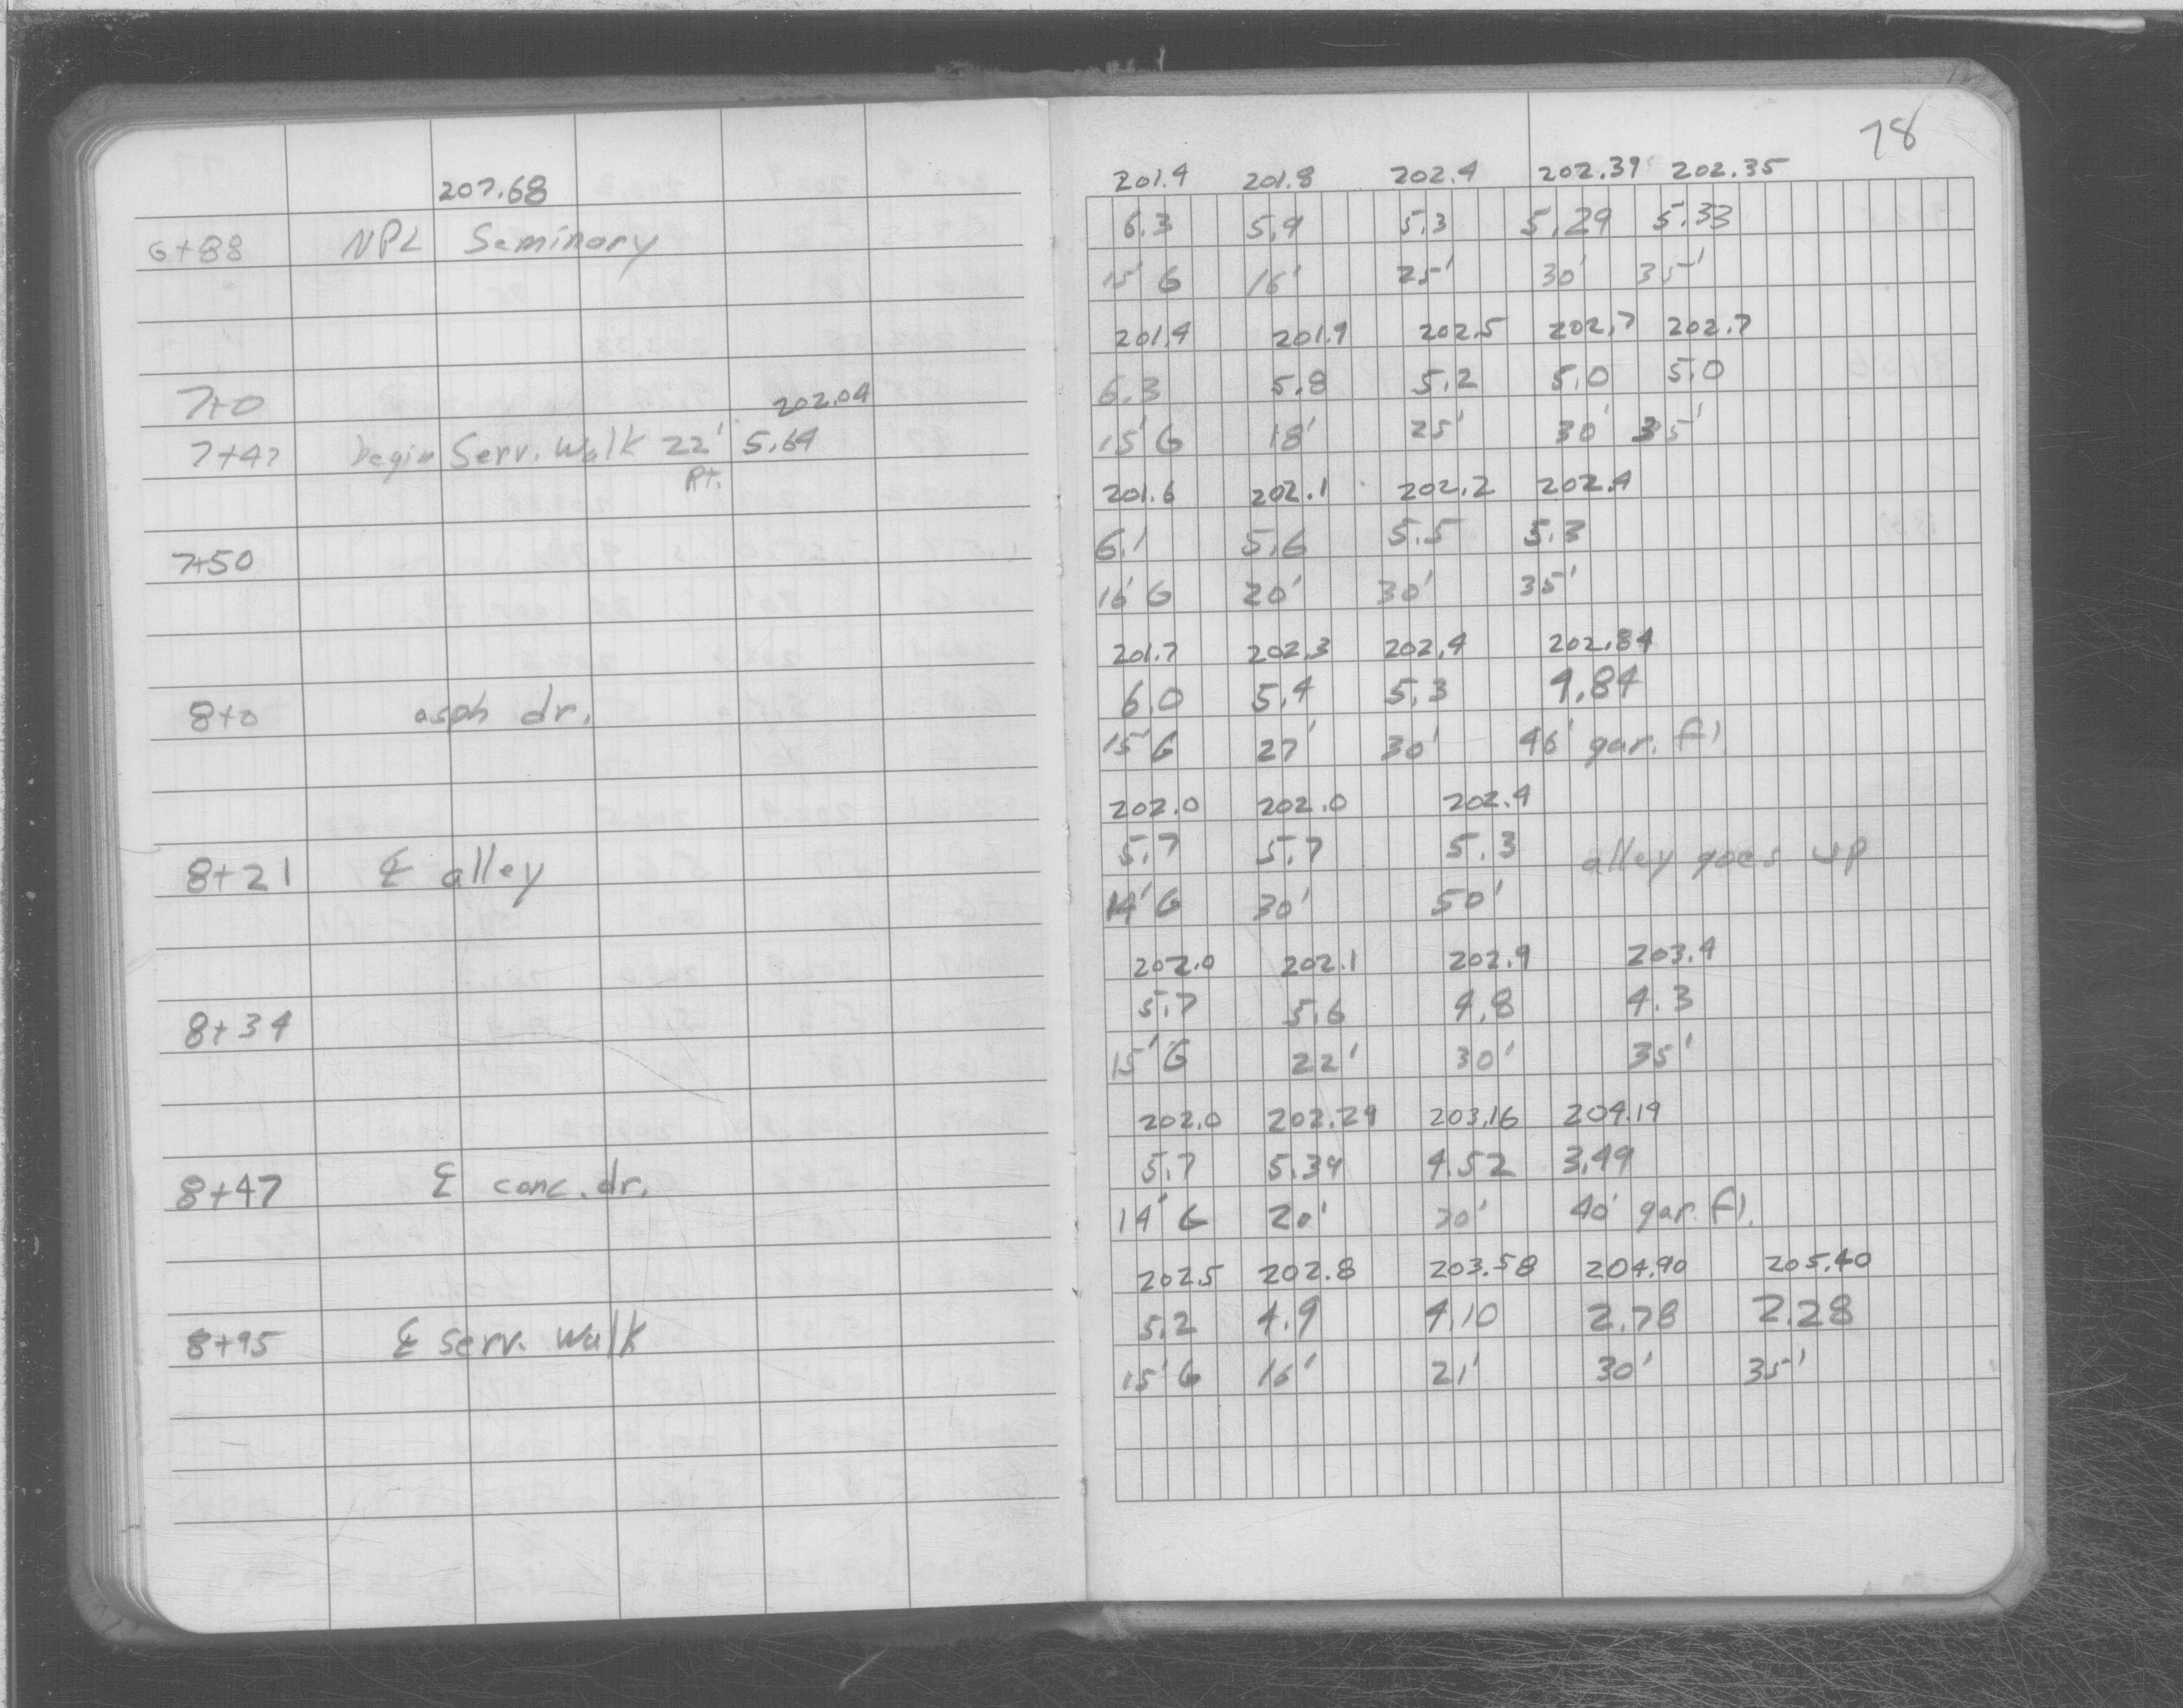 207.68
6+88 NPL Seminary
7+0 202.04
7+47 begin Serv. Walk 22' 5.64
Rt.
7+50
8+0 asph dr.
8+21 ⅊ alley
8+34
8+47 ⅊ conc. dr.
8+95 ⅊ serv. walk
78
201.4 201.8 202.4 202.39 202.35
6.3 5.9 5.3 5.29 5.33
15' G 16' 25' 30' 35'
201.4 201.9 202.5 202.7 202.7
6.3 5.8 5.2 5.0 5.0
15' G 18' 25' 30' 35'
201.6 202.1 202.2 202.4
6.1 5.6 5.5 5.3
16' G 20' 30' 35'
201.7 202.3 202.4 202.84
6.0 5.4 5.3 4.84
15' G 27' 30' 46' gar. fl.
202.0 202.0 202.4
5.7 5.7 5.3 alley goes up
14' G 30' 50'
202.0 202.1 202.9 203.4
5.7 5.6 4.8 4.3
15' G 22' 30' 35'
202.0 202.29 203.16 204.19
5.7 5.39 4.52 3.49
14' G 20' 30' 40' gar. fl.
202.5 202.8 203.58 204.90 205.40
5.2 4.9 4.10 2.78 2.28
15' G 16' 21' 30' 35'